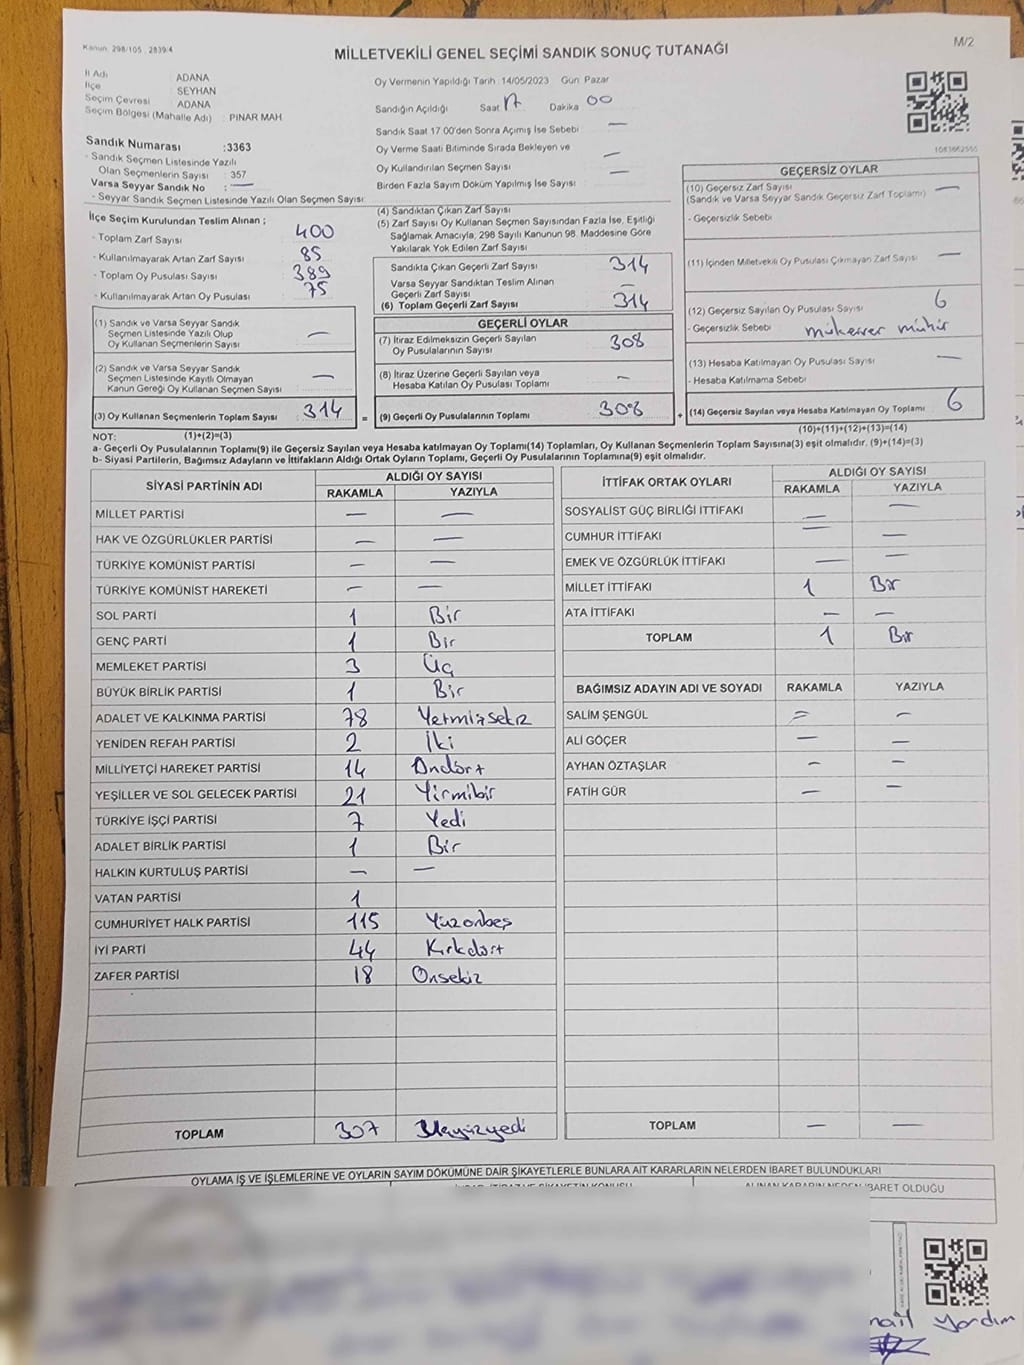 Kanun: 298/105 , 2839/4
MİLLETVEKİLİ GENEL SEÇİMİ SANDIK SONUÇ TUTANAĞI
M/2
İl Adı ADANA
İlçe SEYHAN
Seçim Çevresi ADANA
Seçim Bölgesi (Mahalle Adı) : PINAR MAH
Oy Vermenin Yapıldığı Tarih :14/05/2023 Gün: Pazar
Sandığın Açıldığı Saat 17 Dakika 00
Sandık Saat 17.00'den Sonra Açımış İse Sebebi —
Oy Verme Saati Bitiminde Sırada Bekleyen ve
Oy Kullandırılan Seçmen Sayısı —
Birden Fazla Sayım Döküm Yapılmış İse Sayısı —
Sandık Numarası :3363
- Sandık Seçmen Listesinde Yazılı
Olan Seçmenlerin Sayısı : 357
Varsa Seyyar Sandık No : —
- Seyyar Sandık Seçmen Listesinde Yazılı Olan Seçmen Sayısı:
İlçe Seçim Kurulundan Teslim Alınan ;
- Toplam Zarf Sayısı 400
- Kullanılmayarak Artan Zarf Sayısı 85
- Toplam Oy Pusulası Sayısı 389
- Kullanılmayarak Artan Oy Pusulası 75
(1) Sandık ve Varsa Seyyar Sandık
Seçmen Listesinde Yazılı Olup
Oy Kullanan Seçmenlerin Sayısı —
(2) Sandık ve Varsa Seyyar Sandık
Seçmen Listesinde Kayıtlı Olmayan
Kanun Gereği Oy Kullanan Seçmen Sayısı —
(3) Oy Kullanan Seçmenlerin Toplam Sayısı 314 =
(4) Sandıktan Çıkan Zarf Sayısı
(5) Zarf Sayısı Oy Kullanan Seçmen Sayısından Fazla İse, Eşitliği
Sağlamak Amacıyla, 298 Sayılı Kanunun 98. Maddesine Göre
Yakılarak Yok Edilen Zarf Sayısı
Sandıkta Çıkan Geçerli Zarf Sayısı 314
Varsa Seyyar Sandıktan Teslim Alınan
Geçerli Zarf Sayısı —
(6) Toplam Geçerli Zarf Sayısı 314
GEÇERLİ OYLAR
(7) İtiraz Edilmeksizin Geçerli Sayılan
Oy Pusulalarının Sayısı 308
(8) İtiraz Üzerine Geçerli Sayılan veya
Hesaba Katılan Oy Pusulası Toplamı —
(9) Geçerli Oy Pusulalarının Toplamı 308 +
1083662555
GEÇERSİZ OYLAR
(10) Geçersiz Zarf Sayısı —
(Sandık ve Varsa Seyyar Sandık Geçersiz Zarf Toplamı)
- Geçersizlik Sebebi
(11) İçinden Milletvekili Oy Pusulası Çıkmayan Zarf Sayısı —
(12) Geçersiz Sayılan Oy Pusulası Sayısı 6
- Geçersizlik Sebebi mükerrer mühür
(13) Hesaba Katılmayan Oy Pusulası Sayısı —
- Hesaba Katılmama Sebebi
(14) Geçersiz Sayılan veya Hesaba Katılmayan Oy Toplamı 6
(10)+(11)+(12)+(13)=(14)
NOT: (1)+(2)=(3)
a- Geçerli Oy Pusulalarının Toplamı(9) ile Geçersiz Sayılan veya Hesaba katılmayan Oy Toplamı(14) Toplamları, Oy Kullanan Seçmenlerin Toplam Sayısına(3) eşit olmalıdır. (9)+(14)=(3)
b- Siyasi Partilerin, Bağımsız Adayların ve İttifakların Aldığı Ortak Oyların Toplamı, Geçerli Oy Pusulalarının Toplamına(9) eşit olmalıdır.
SİYASİ PARTİNİN ADI ALDIĞI OY SAYISI
RAKAMLA YAZIYLA
MİLLET PARTİSİ — —
HAK VE ÖZGÜRLÜKLER PARTİSİ — —
TÜRKİYE KOMÜNİST PARTİSİ — —
TÜRKİYE KOMÜNİST HAREKETİ — —
SOL PARTİ 1 Bir
GENÇ PARTİ 1 Bir
MEMLEKET PARTİSİ 3 Üç
BÜYÜK BİRLİK PARTİSİ 1 Bir
ADALET VE KALKINMA PARTİSİ 78 Yetmişsekiz
YENİDEN REFAH PARTİSİ 2 İki
MİLLİYETÇİ HAREKET PARTİSİ 14 Ondört
YEŞİLLER VE SOL GELECEK PARTİSİ 21 Yirmibir
TÜRKİYE İŞÇİ PARTİSİ 7 Yedi
ADALET BİRLİK PARTİSİ 1 Bir
HALKIN KURTULUŞ PARTİSİ — —
VATAN PARTİSİ 1
CUMHURİYET HALK PARTİSİ 115 Yüzonbeş
İYİ PARTİ 44 Kırkdört
ZAFER PARTİSİ 18 Onsekiz
TOPLAM 307 Üçyüzyedi
İTTİFAK ORTAK OYLARI ALDIĞI OY SAYISI
RAKAMLA YAZIYLA
SOSYALİST GÜÇ BİRLİĞİ İTTİFAKI — —
CUMHUR İTTİFAKI — —
EMEK VE ÖZGÜRLÜK İTTİFAKI — —
MİLLET İTTİFAKI 1 Bir
ATA İTTİFAKI — —
TOPLAM 1 Bir
BAĞIMSIZ ADAYIN ADI VE SOYADI RAKAMLA YAZIYLA
SALİM ŞENGÜL = —
ALİ GÖÇER — —
AYHAN ÖZTAŞLAR — —
FATİH GÜR — —
TOPLAM — —
OYLAMA İŞ VE İŞLEMLERİNE VE OYLARIN SAYIM DÖKÜMÜNE DAİR ŞİKAYETLERLE BUNLARA AİT KARARLARIN NELERDEN İBARET BULUNDUKLARI
ALINAN KARARIN NEDEN İBARET OLDUĞU
yardım